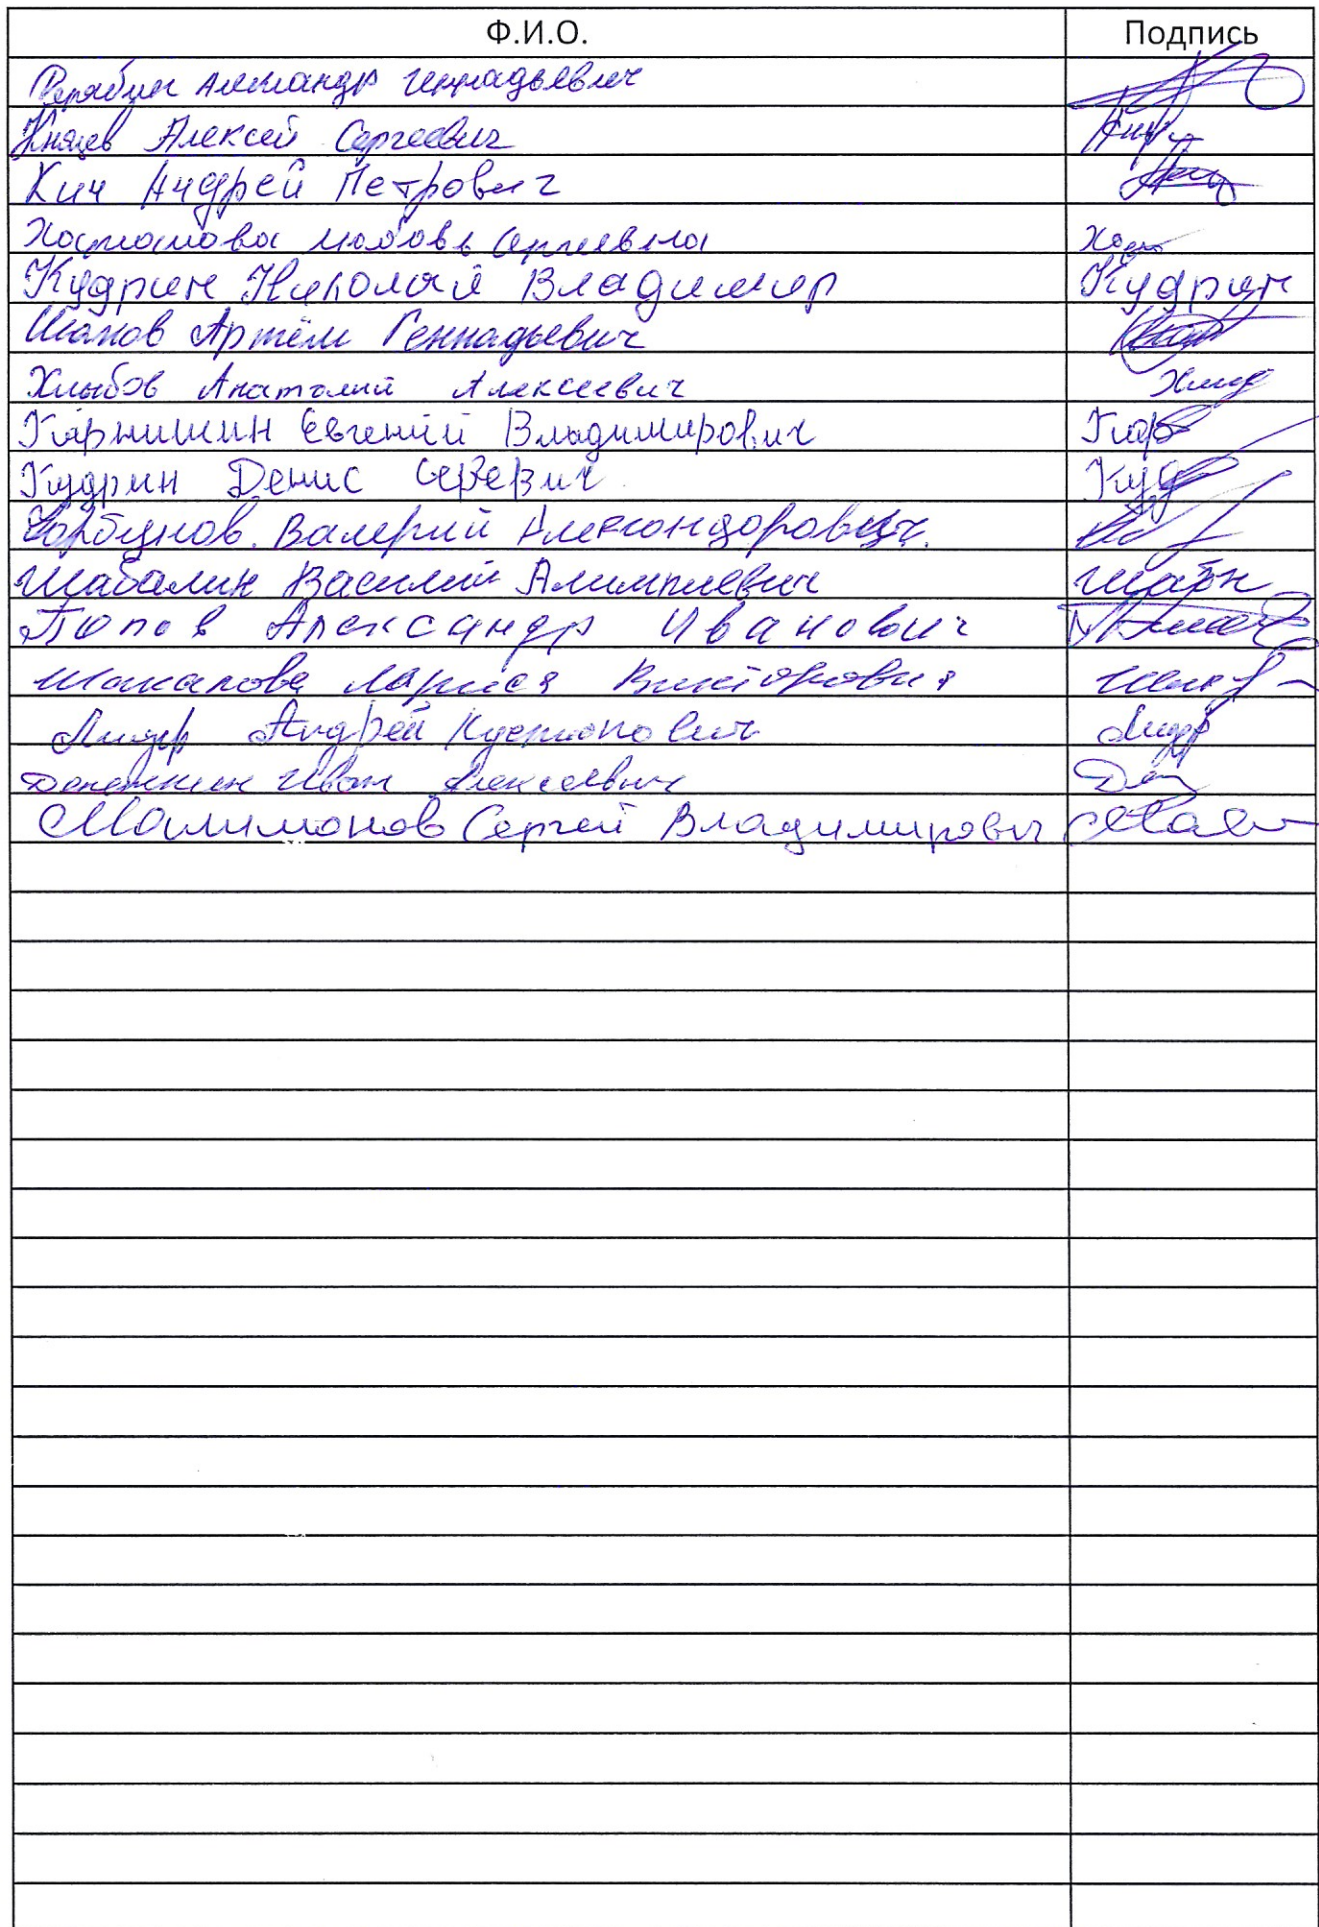 Ф.И.О. Подпись
Александр Геннадьевич
Князев Алексей Сергеевич
Кич Андрей Петрович
Любовь Сергеевна
Кудрин Николай Владимир Кудрин
Шаков Артём Геннадьевич
Хлыбов Анатолий Алексеевич
Карнишин Евгений Владимирович Кар
Кудрин Денис Куд
Горбунов. Валерий Александорович.
Шабалин Василий Алимпиевич Шабн
Попов Александр Иванович
Шакалова Лариса Викторовна
Лидер Андрей Лидр
Иван Алексеевич
Малимонов Сергей Владимирович